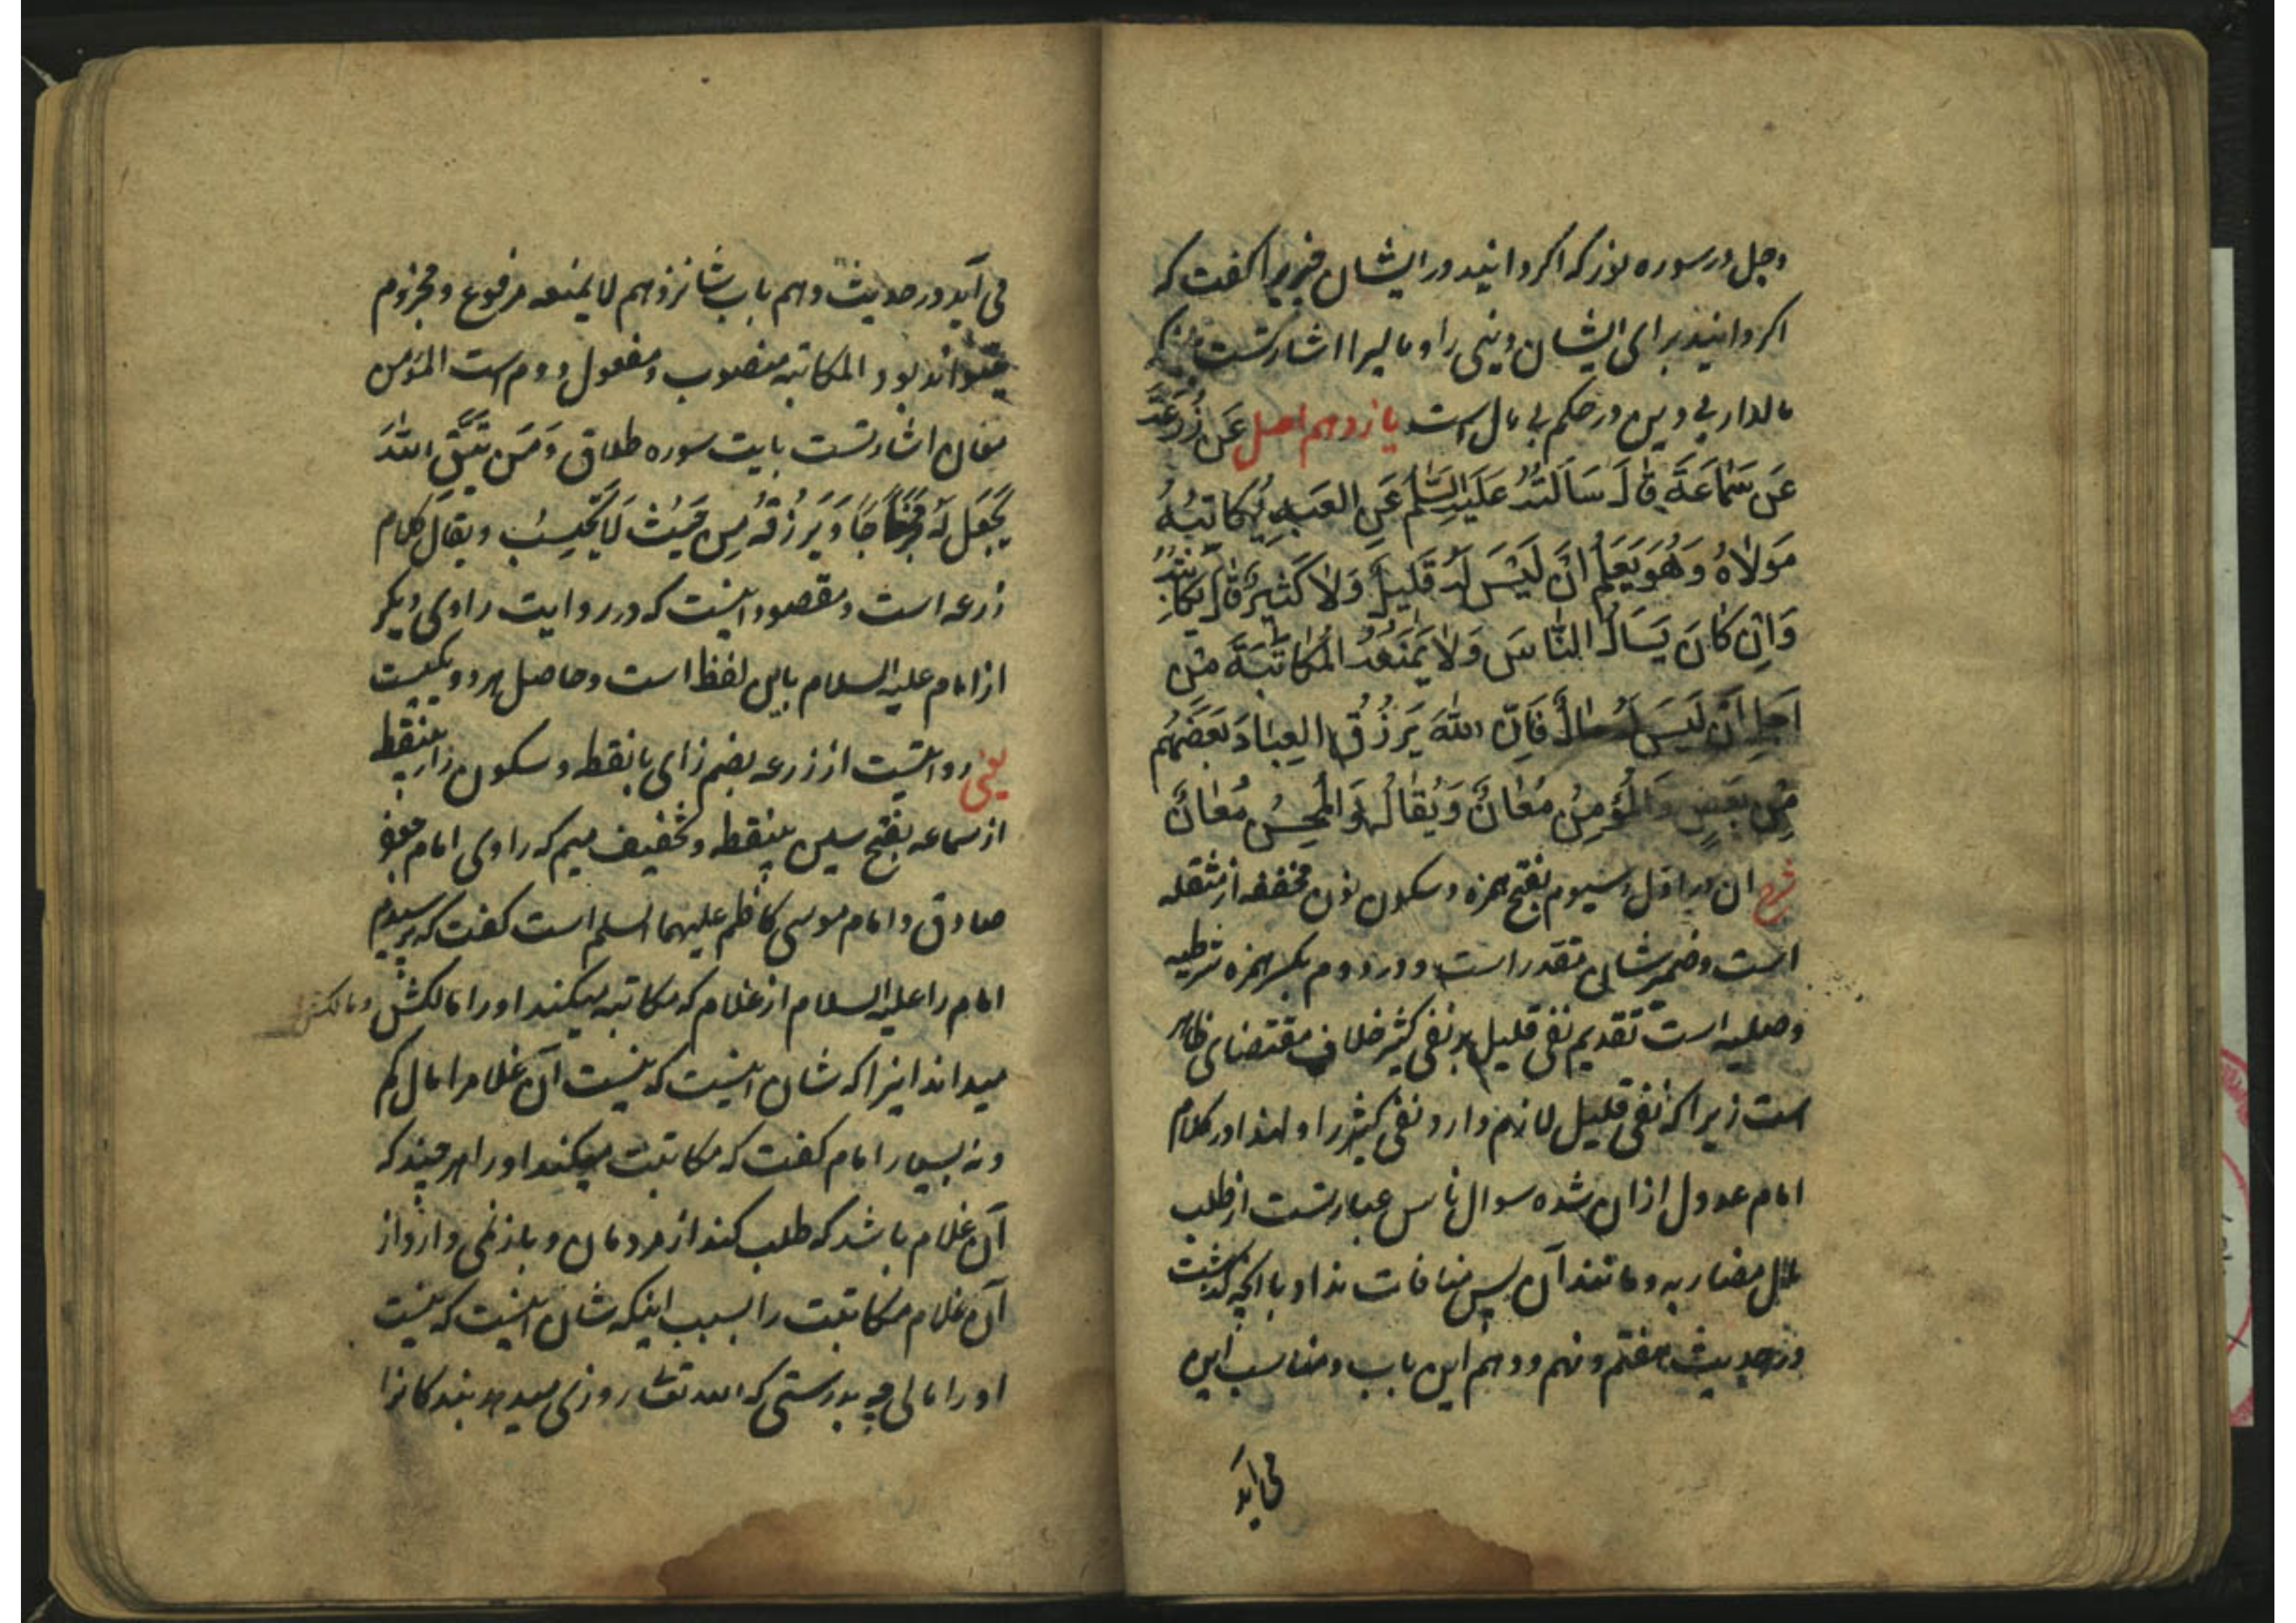 وجل در سوره نور که اگر دانید در ایشان خیریرا گفت که
اگر دانید برای ایشان دینی را و مالیرا اشارتست باینکه
مالدار بی دین در حکم بی مال است یازدهم اصل عَن زُرعَةَ
عَن سَمَاعَةَ قالَ سَاَلتُهُ عَلَیهِ السَّلمُ عَنِ العَبدِ یُکَاتِبُهُ
مَولاهُ وَهُوَ یَعلَمُ اَن لَیسَ لَهُ قَلِیلٌ وَلا کَثِیرٌ قالَ یُکاتِبُهُ
وَاِن کانَ یَساَلُ النّاسَ وَلا یَمنَعُهُ المُکاتَبَةَ مِن
اَجلِ اَن لَیسَ لَهُ مالٌ فَاِنَّ اللّهَ یَرزُقُ العِبادَ بَعضَهُم
مِن بَعضٍ وَالمُؤمِنُ مُعانٌ وَیُقالُ وَالمُحسِنُ مُعانٌ
شرح ان در اول و سیوم بفتح همزه و سکون نون مخففه از مثقله
است و ضمیر شان مقدر است و در دوم بکسر همزه شرطیه
وصلیه است تقدیم نفی قلیل بر نفی کثیر خلاف مقتضای ظاهر
است زیرا که نفی قلیل لازم دارد نفی کثیر را و لهذا در کلام
امام عدول ازان شده سوال ناس عبارتست از طلب
مال مضاربه و مانند آن پس منافات ندارد با انچه گذشت
در حدیث هفتم و نهم و دهم این باب و مناسب این
می آید
می آید در حدیث دهم باب شانزدهم لا یمنعه مرفوع و مجزوم
میتواند بود و المکاتبه منصوب و مفعول دوم است المؤمن
معان اشارتست بایت سوره طلاق وَمَن یَتَّقِ اللّهَ
یَجعَل لَهُ مَخرَجًا وَیَرزُقهُ مِن حَیثُ لَا یَحتَسِبُ و یقال کلام
زرعه است و مقصود اینست که در روایت راوی دیگر
از امام علیه السلام باین لفظ است و حاصل هر دو یکیست
یعنی روایتست از زرعه بضم زای با نقطه و سکون رای بینقطه
از سماعه بفتح سین بینقطه و تخفیف میم که راوی امام جعفر
صادق و امام موسی کاظم علیهما السلم است گفت که پرسیدم
امام را علیه السلام از غلام که مکاتبه میکند او را مالکش و مالکش
میداند اینرا که شان اینست که نیست آن غلامرا مال کم
و نه بسیار امام گفت که مکاتبت میکند او را هر چند که
آن غلام باشد که طلب کند از مردمان و باز نمی دارد از
آن غلام مکاتبت را بسبب اینکه شان اینست که نیست
او را مالی چه بدرستی که الله تعالی روزی میدهد بندگانرا